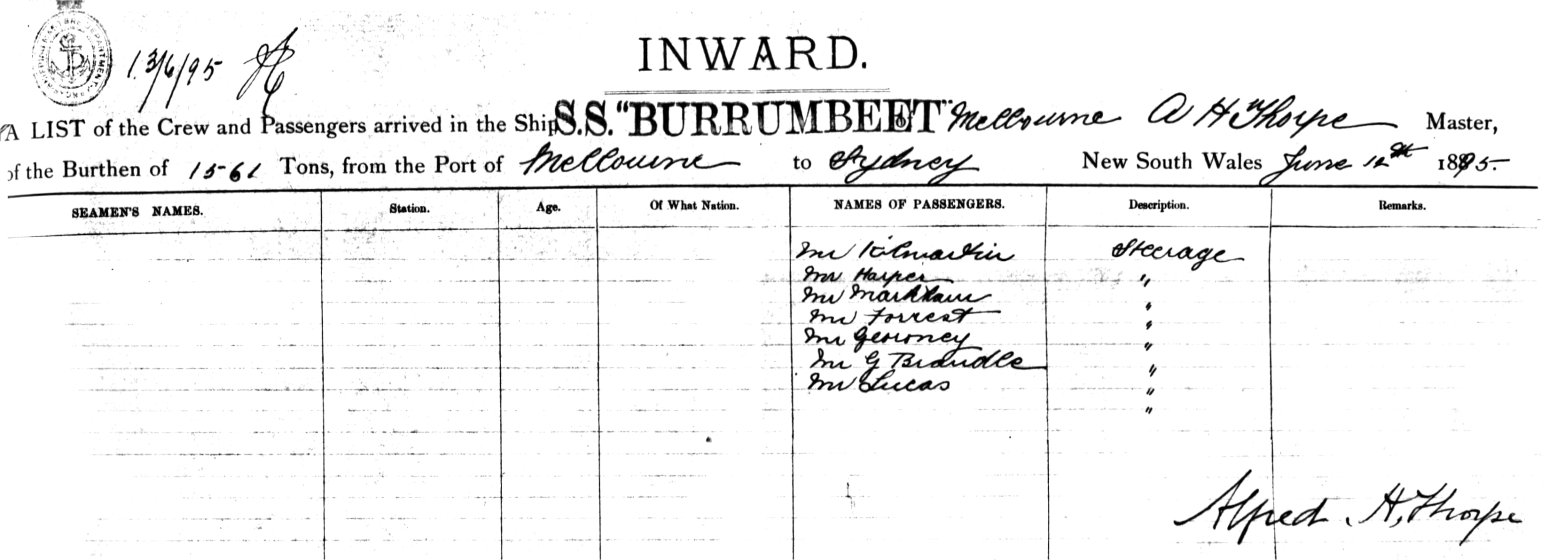 13/6/95
INWARD.
A LIST of the Crew and Passengers arrived in the Ship S.S. "BURRUMBEET" of Melbourne A H Thorpe Master,
of the Burthen of 1561 Tons, from the Port of Melbourne to Sydney New South Wales June 12th 1895
SEAMEN'S NAMES. Station. Age. Of What Nation. NAMES OF PASSENGERS. Description. Remarks.
Mr Kilmartin Steerage
Mr Harper "
Mr Markham "
Mr Forrest "
Mr "
Mr G Brandle "
Mr Lucas "
"
Alfred H, Thorpe